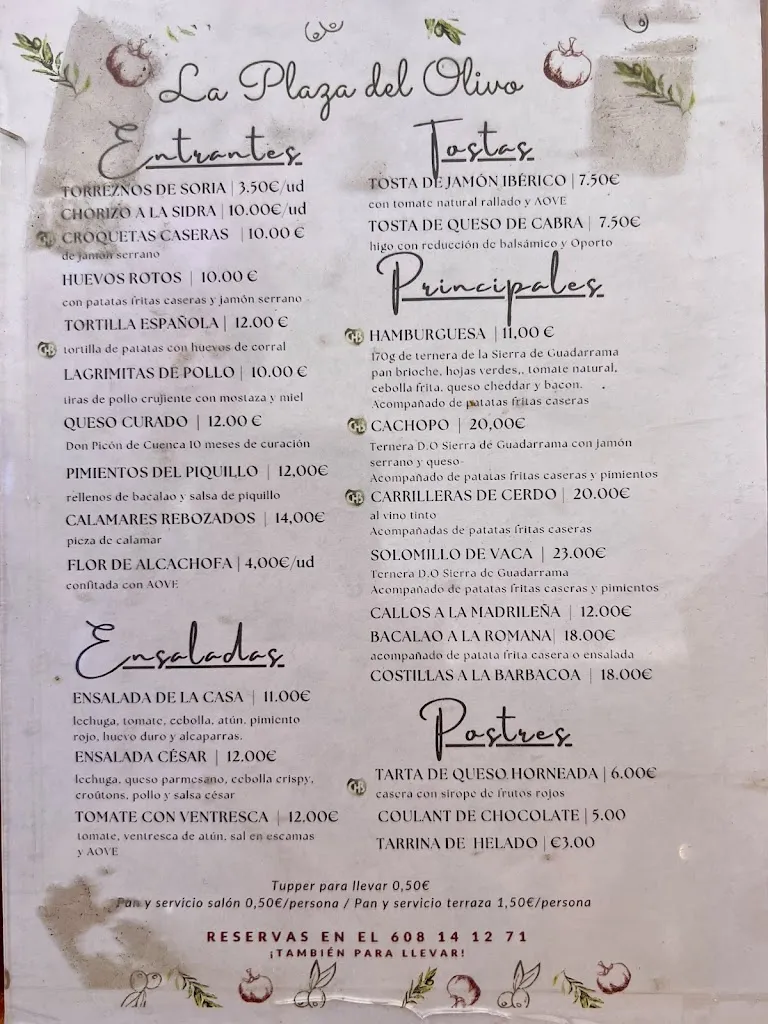 La Plaza del Olivo
Entrantes
TORREZNOS DE SORIA | 3.50€/ud
CHORIZO A LA SIDRA | 10.00€/ud
CROQUETAS CASERAS | 10.00 €
de jamón serrano
HUEVOS ROTOS | 10.00 €
con patatas fritas caseras y jamón serrano
TORTILLA ESPAÑOLA | 12.00 €
tortilla de patatas con huevos de corral
LAGRIMITAS DE POLLO | 10.00 €
tiras de pollo crujiente con mostaza y miel
QUESO CURADO | 12.00 €
Don Picón de Cuenca 10 meses de curación
PIMIENTOS DEL PIQUILLO | 12,00€
rellenos de bacalao y salsa de piquillo
CALAMARES REBOZADOS | 14,00€
pieza de calamar
FLOR DE ALCACHOFA | 4,00€/ud
confitada con AOVE
Ensaladas
ENSALADA DE LA CASA | 11.00€
lechuga, tomate, cebolla, atún, pimiento
rojo, huevo duro y alcaparras.
ENSALADA CÉSAR | 12.00€
lechuga, queso parmesano, cebolla crispy,
croûtons, pollo y salsa césar
TOMATE CON VENTRESCA | 12,00€
tomate, ventresca de atún, sal en escamas
y AOVE
Tostas
TOSTA DE JAMÓN IBÉRICO | 7.50€
con tomate natural rallado y AOVE
TOSTA DE QUESO DE CABRA | 7,50€
higo con reducción de balsámico y Oporto
Principales
HAMBURGUESA | 11,00 €
170g de ternera de la Sierra de Guadarrama
pan brioche, hojas verdes,, tomate natural,
cebolla frita, queso cheddar y bacon.
Acompañado de patatas fritas caseras
CACHOPO | 20,00€
Ternera D.O Sierra de Guadarrama con jamón
serrano y queso-
Acompañado de patatas fritas caseras y pimientos
CARRILLERAS DE CERDO | 20.00€
al vino tinto
Acompañadas de patatas fritas caseras
SOLOMILLO DE VACA | 23.00€
Ternera D.O Sierra de Guadarrama
Acompañado de patatas fritas caseras y pimientos
CALLOS A LA MADRILEÑA | 12.00€
BACALAO A LA ROMANA| 18.00€
acompañado de patata frita casera o ensalada
COSTILLAS A LA BARBACOA | 18.00€
Postres
TARTA DE QUESO HORNEADA | 6.00€
casera con sirope de frutos rojos
COULANT DE CHOCOLATE | 5.00
TARRINA DE HELADO | €3.00
Tupper para llevar 0,50€
Pan y servicio salón 0,50€/persona / Pan y servicio terraza 1,50€/persona
RESERVAS EN EL 608 14 12 71
¡TAMBIÉN PARA LLEVAR!